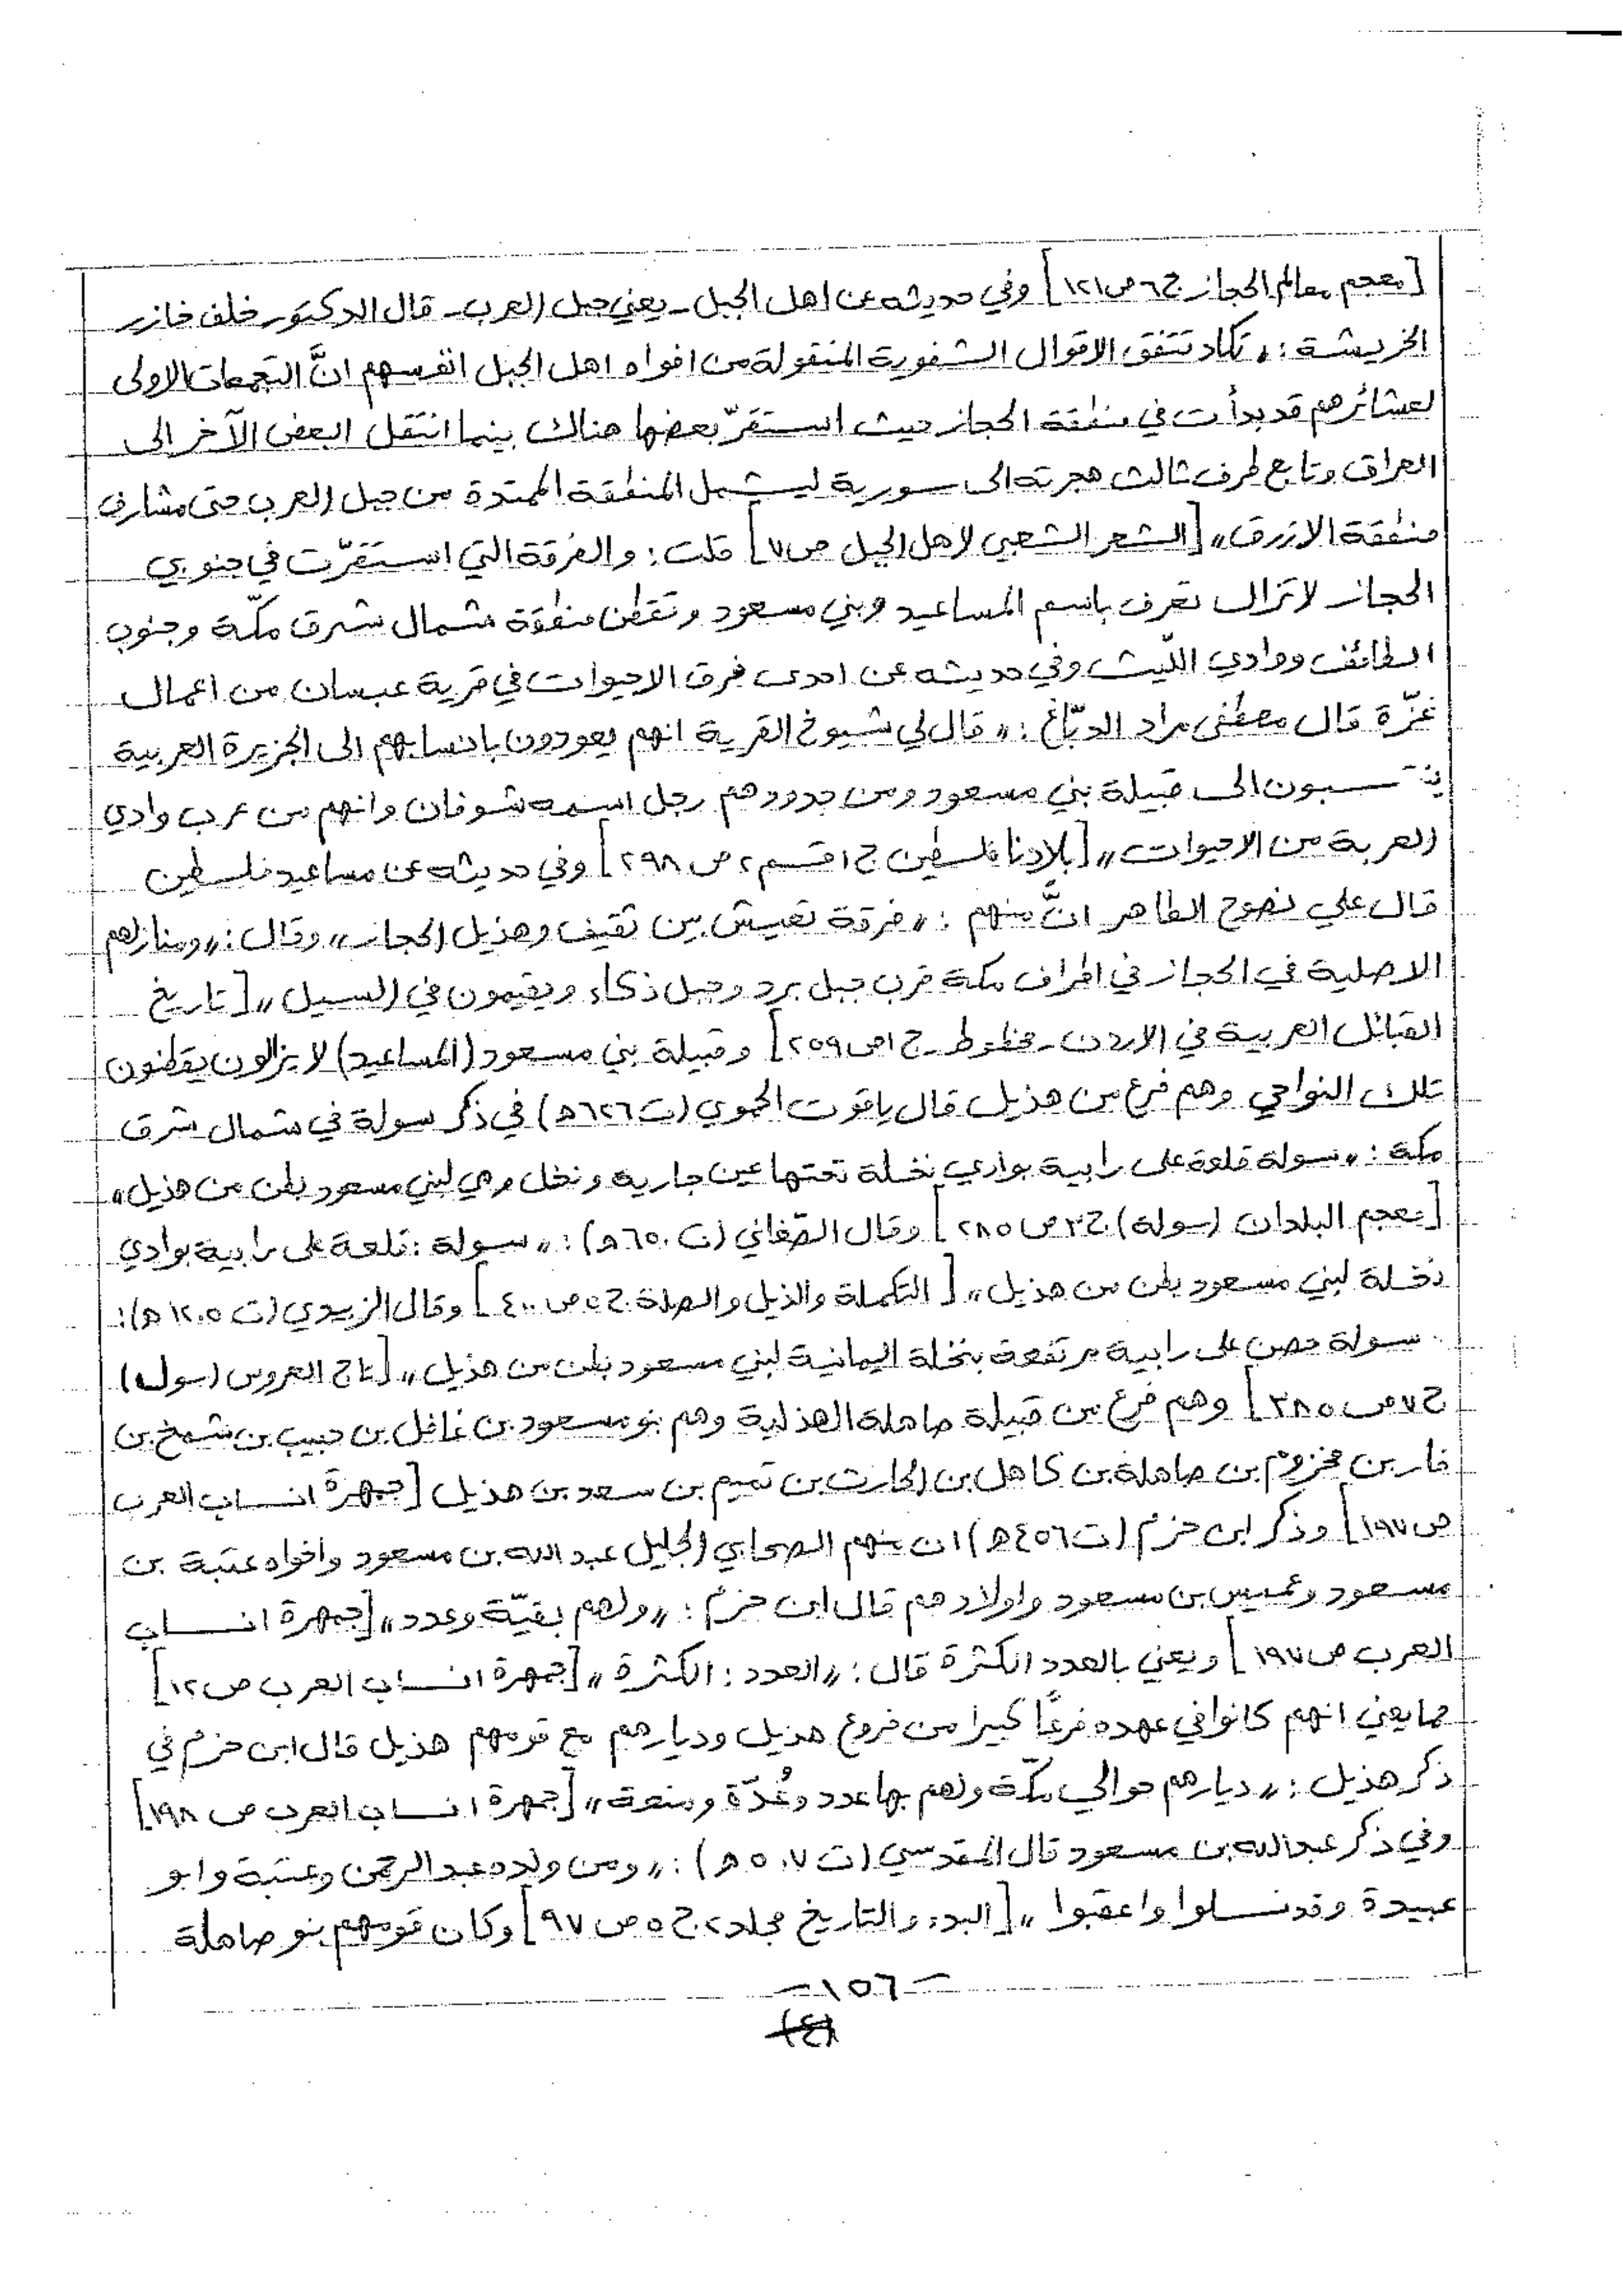 [معجم معالم الحجاز ج٦ ص١٢١] وفي حديثه عن اهل الجبل - يعني جبل العرب - قال الدكتور خلف خازر
الخريشة : « تكاد تتفق الاقوال الشفوية المنقولة من افواه اهل الجبل انفسهم انَّ التجمعات الاولى
لعشائرهم قد بدأت في منطقة الحجاز حيث استقرّ بعضها هناك بينما انتقل البعض الآخر الى
العراق وتابع طرف ثالث هجرته الى سورية ليشمل المنطقة الممتدة من جبل العرب حتى مشارف
منطقة الازرق » [الشعر الشعبي لاهل الجبل ص٧] قلت : والفرقة التي استقرّت في جنوبي
الحجاز لا تزال تعرف باسم المساعيد وبني مسعود وتقطن منطقة شمال شرق مكّة وجنوب
الطائف ووادي اللّيث وفي حديثه عن احدى فرق الاحيوات في قرية عبسان من اعمال
غزّة قال مصطفى مراد الدبّاغ : « قال لي شيوخ القرية انهم يعودون بانسابهم الى الجزيرة العربية
ينتسبون الى قبيلة بني مسعود ومن جدودهم رجل اسمه شوفان وانهم من عرب وادي
العربة من الاحيوات » [بلادنا فلسطين ج١ قسم٢ ص ٢٩٨] وفي حديثه عن مساعيد فلسطين
قال علي نصوح الطاهر انَّ منهم : « فرقة تعيش بين ثقيف وهذيل الحجاز » وقال : « ومنازلهم
الاصلية في الحجاز في اطراف مكة قرب جبل برد وجبل ذكاء ويقيمون في السيل » [تاريخ
القبائل العربية في الاردن - مخطوط - ج١ ص٢٥٩] وقبيلة بني مسعود (المساعيد) لا يزالون يقطنون
تلك النواحي وهم فرع من هذيل قال ياقوت الحموي (ت ٦٢٦ه) في ذكر سولة في شمال شرق
مكة : « سولة قلعة على رابية بوادي نخلة تحتها عين جارية ونخل وهي لبني مسعود بطن من هذيل »
[معجم البلدان (سولة) ج٣ ص ٢٨٥] وقال الصّغاني (ت ٦٥٠ه) : « سولة : قلعة على رابية بوادي
نخلة لبني مسعود بطن من هذيل » [التكملة والذيل والصلة ج٥ ص ٤٠٠] وقال الزبيدي (ت ١٢٠٥ ه) :
سولة حصن على رابية مرتفعة بنخلة اليمانية لبني مسعود بطن من هذيل » [تاج العروس (سول)
ج٧ ص ٣٨٥] وهم فرع من قبيلة صاهلة الهذلية وهم بنو مسعود بن غافل بن حبيب بن شمخ بن
فار بن مخزوم بن صاهلة بن كاهل بن الحارث بن تميم بن سعد بن هذيل [جمهرة انساب العرب
ص ١٩٧] وذكر ابن حزم (ت ٤٥٦ه) ان منهم الصحابي الجليل عبد الله بن مسعود واخواه عتبة بن
مسعود وعميس بن مسعود واولادهم قال ابن حزم : « ولهم بقيّة وعدد » [جمهرة انساب
العرب ص ١٩٧] ويعني بالعدد الكثرة قال : « العدد : الكثرة » [جمهرة انساب العرب ص١٢]
مما يعني انهم كانوا في عهده فرعًا كبيرا من فروع هذيل وديارهم مع قومهم هذيل قال ابن حزم في
ذكر هذيل : « ديارهم حوالي مكّة ولهم بها عدد وعُدّة ومنعة » [جمهرة انساب العرب ص ١٩٨]
وفي ذكر عبدالله بن مسعود قال المقدسي (ت ٥٠٧ ه) : « ومن ولده عبد الرحمن وعتبة وابو
عبيدة وقد نسلوا واعقبوا » [البدء والتاريخ مجلد٢ ج٥ ص ٩٧] وكان قومهم بنو صاهلة
- ١٥٦ -